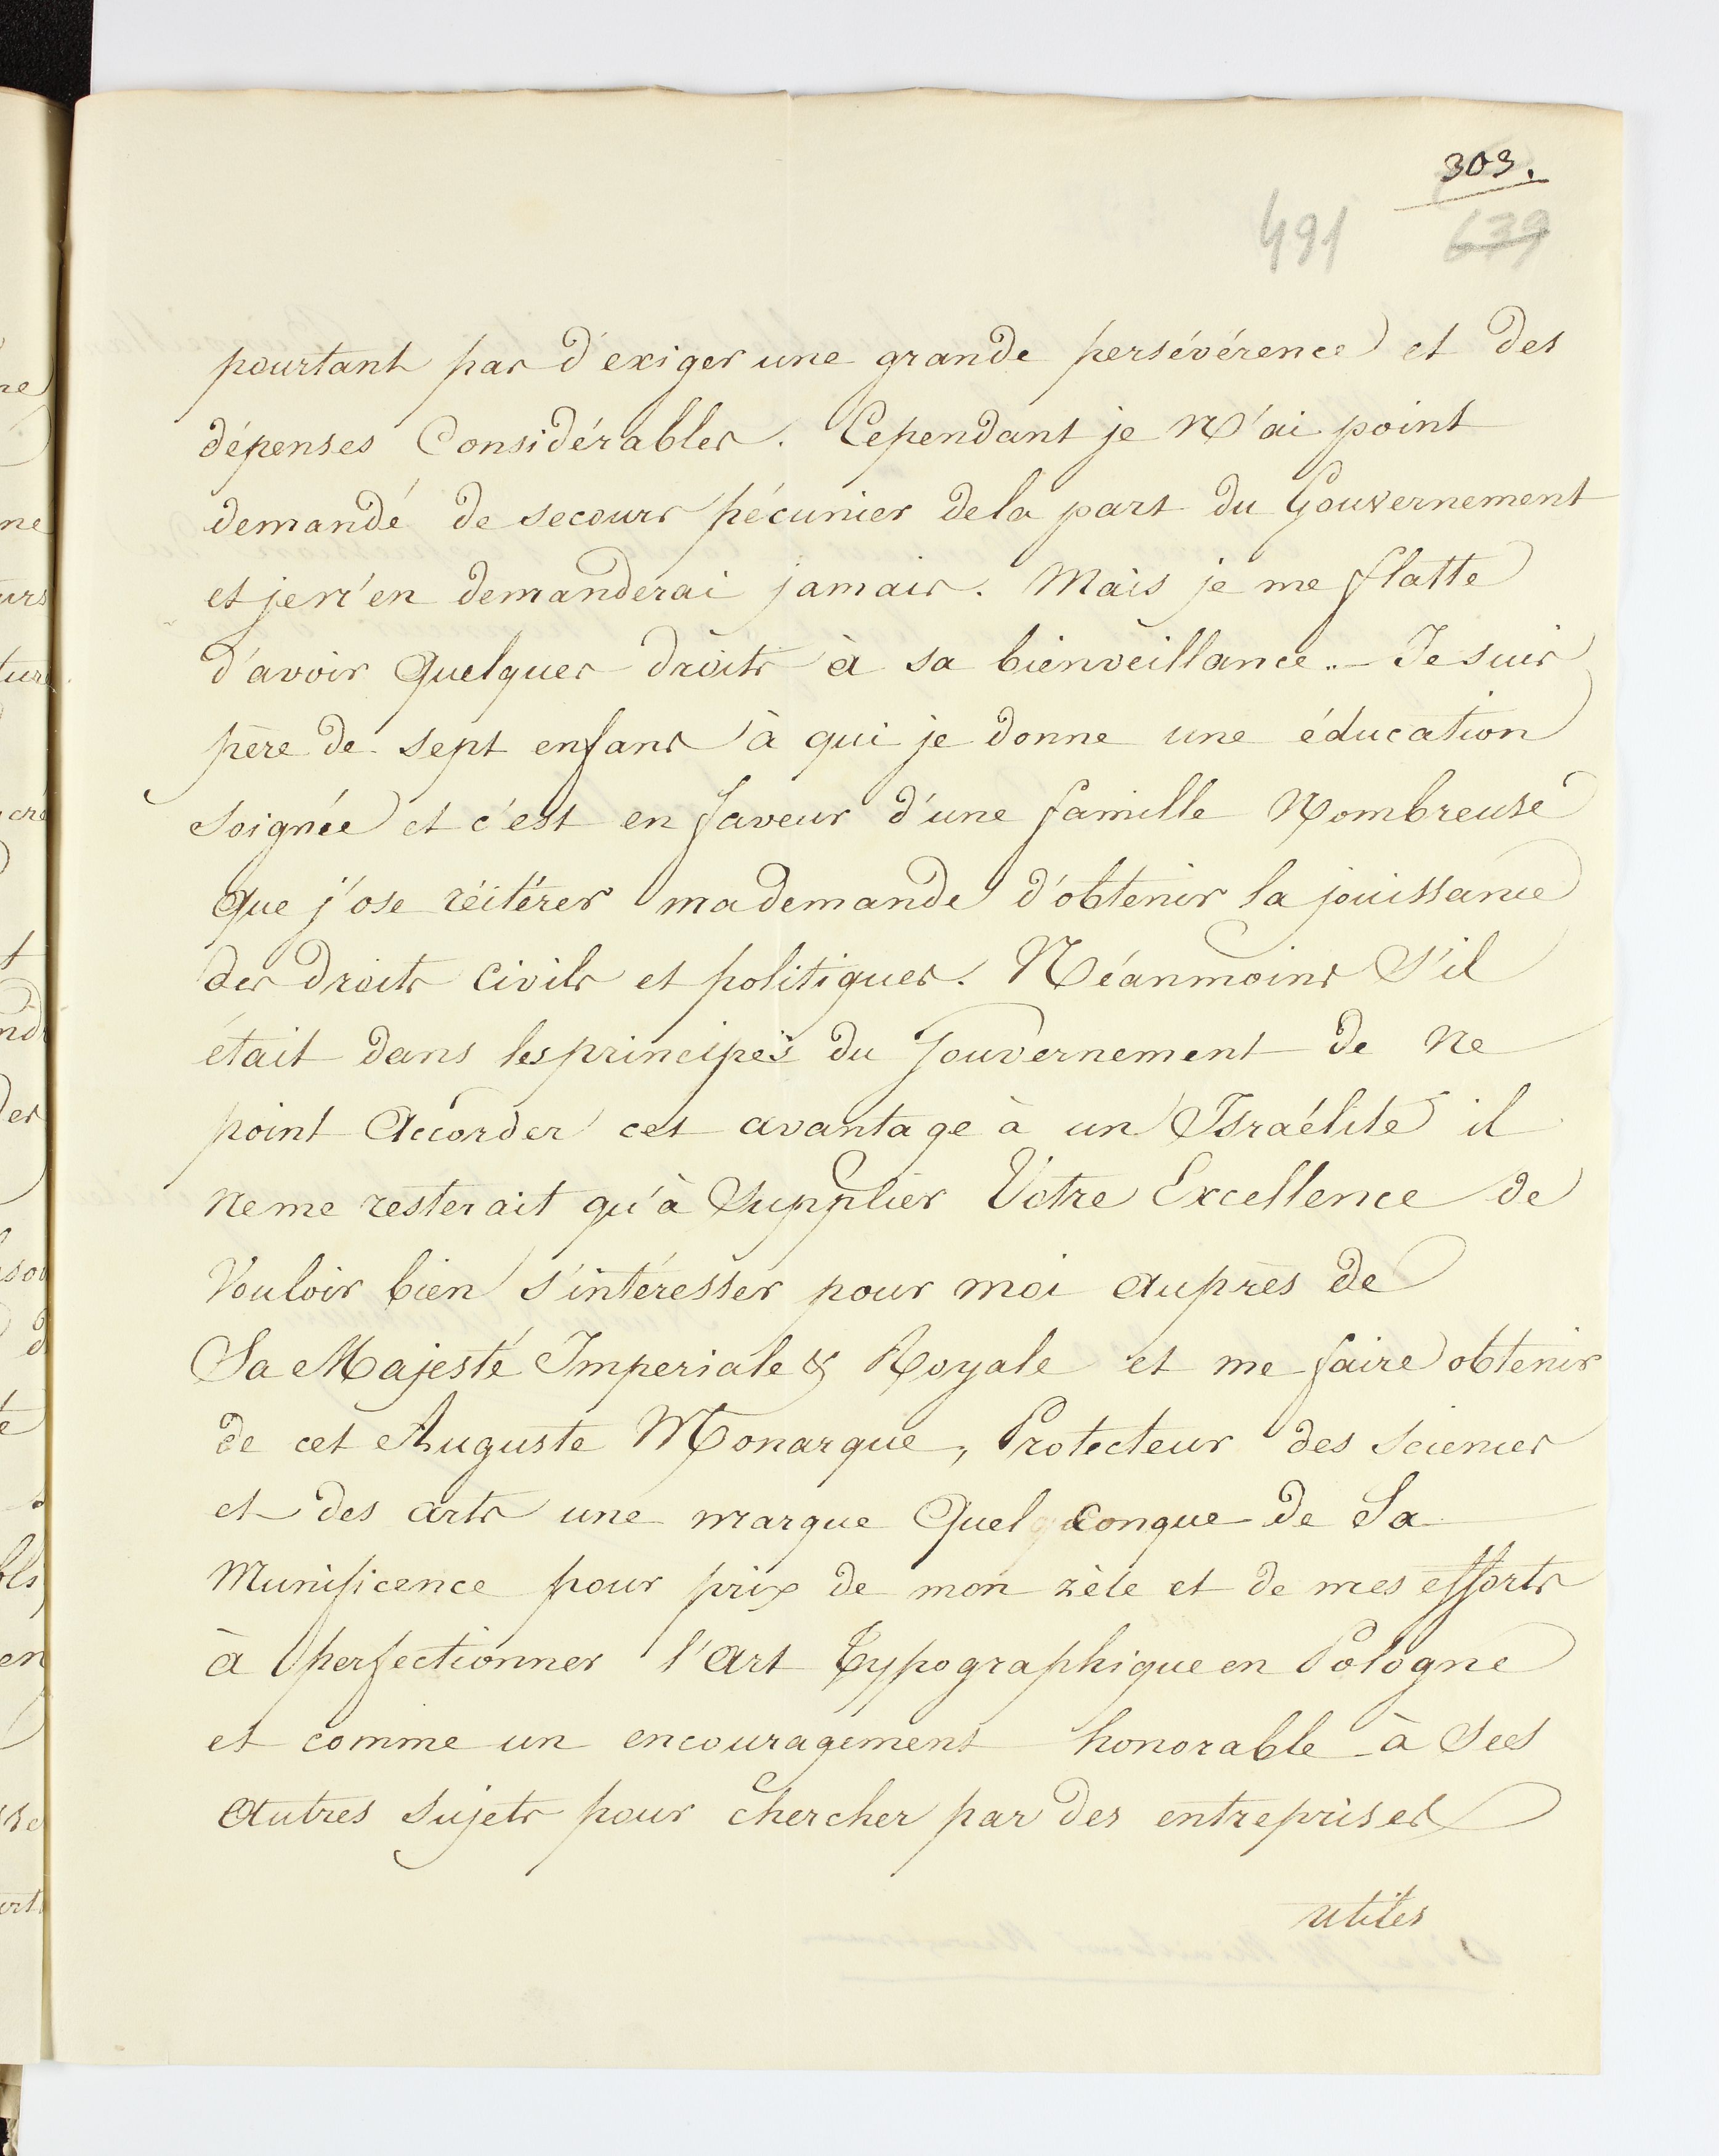 303.
491 639
pourtant pas d'exiger une grande persévérence et des
dépenses Considérables. Cependant je N'ai point
demandé de secours pécunier dela part du Gouvernement
et je n'en demanderai jamais. Mais je me flatte
d'avoir Quelques droits à sa bienveillance.. – Je suis
père de sept enfans à qui je donne une éducation
soignée et c'est en faveur d'une famille Nombreuse
Que j'ose réitérer ma demande d'obtenir la jouissance
des droits Civils et politiques. Néanmoins S'il
était dans les principes du Gouvernement de Ne
point Accorder cet avantage à un Israélite il
Ne me resterait qu'à Supplier Votre Excellence de
Vouloir bien s'intéresser pour moi auprès de
Sa Majesté Imperiale & Royale et me faire obtenir
de cet Auguste Monarque, Protecteur des Sciences
et des arts une marque Quelconque de Sa
Munificence pour prix de mon zèle et de mes efforts
à perfectionner l'Art Typographique en Pologne
et comme un encouragement honorable à Ses
Autres Sujets pour Chercher par des entreprises
utiles